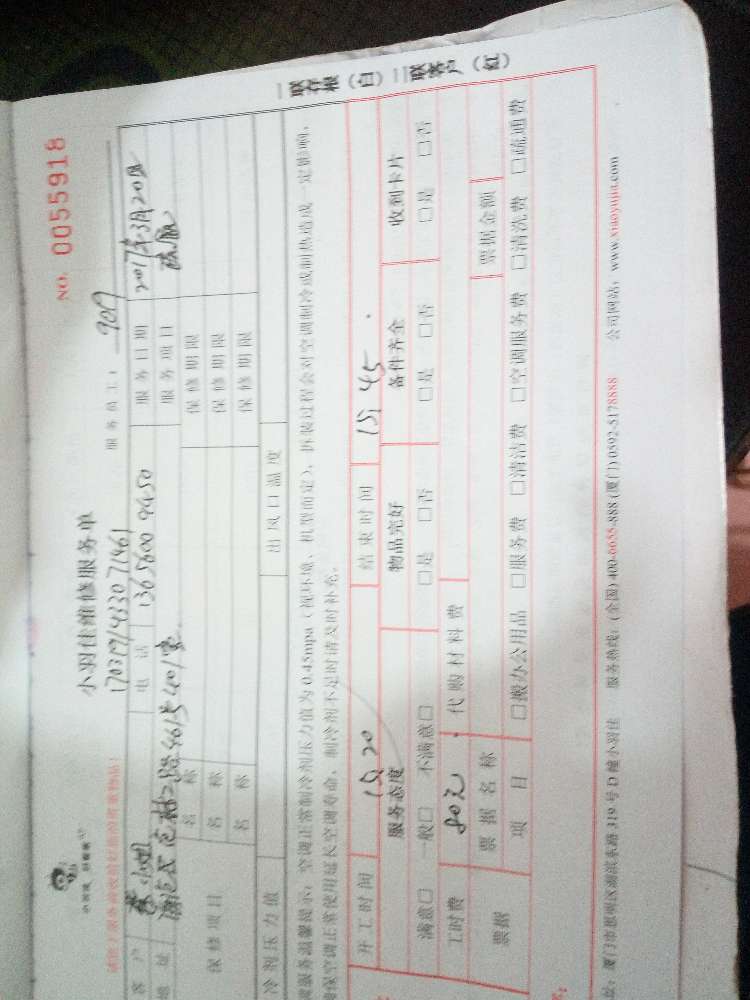 NO. 0055918
小羽佳维修服务单
服务员工: 909
1703171433071461
客户 小姐 电话 13656009450 服务日期 2017年3月20日
地址 461号401室 服务项目 疏通
保修项目 名称 保修期限
名称 保修期限
名称 保修期限
冷剂压力值 出风口温度
调服务温馨提示:空调正常制冷剂压力值为0.45mpa(视环境、机型而定),拆装过程会对空调制冷或制热造成一定影响,
确保空调正常使用延长空调寿命,制冷剂不足时请及时补充。
一联存根(白)二联客户(红)
开工时间 15:20 结束时间 15:45
服务态度 物品完好 备件齐全 收到卡片
满意□ 一般□ 不满意□ □是 □否 □是 □否 □是 □否
工时费 80元 代购材料费
票据 票据名称 票据金额
项目 □搬办公用品 □服务费 □清洁费 □空调服务费 □清洗费 □疏通费
址:厦门市思明区湖滨东路319号D幢小羽佳 服务热线:(全国)400-6655-888 (厦门)0592-5178888 公司网站:www.xiaoyujia.com